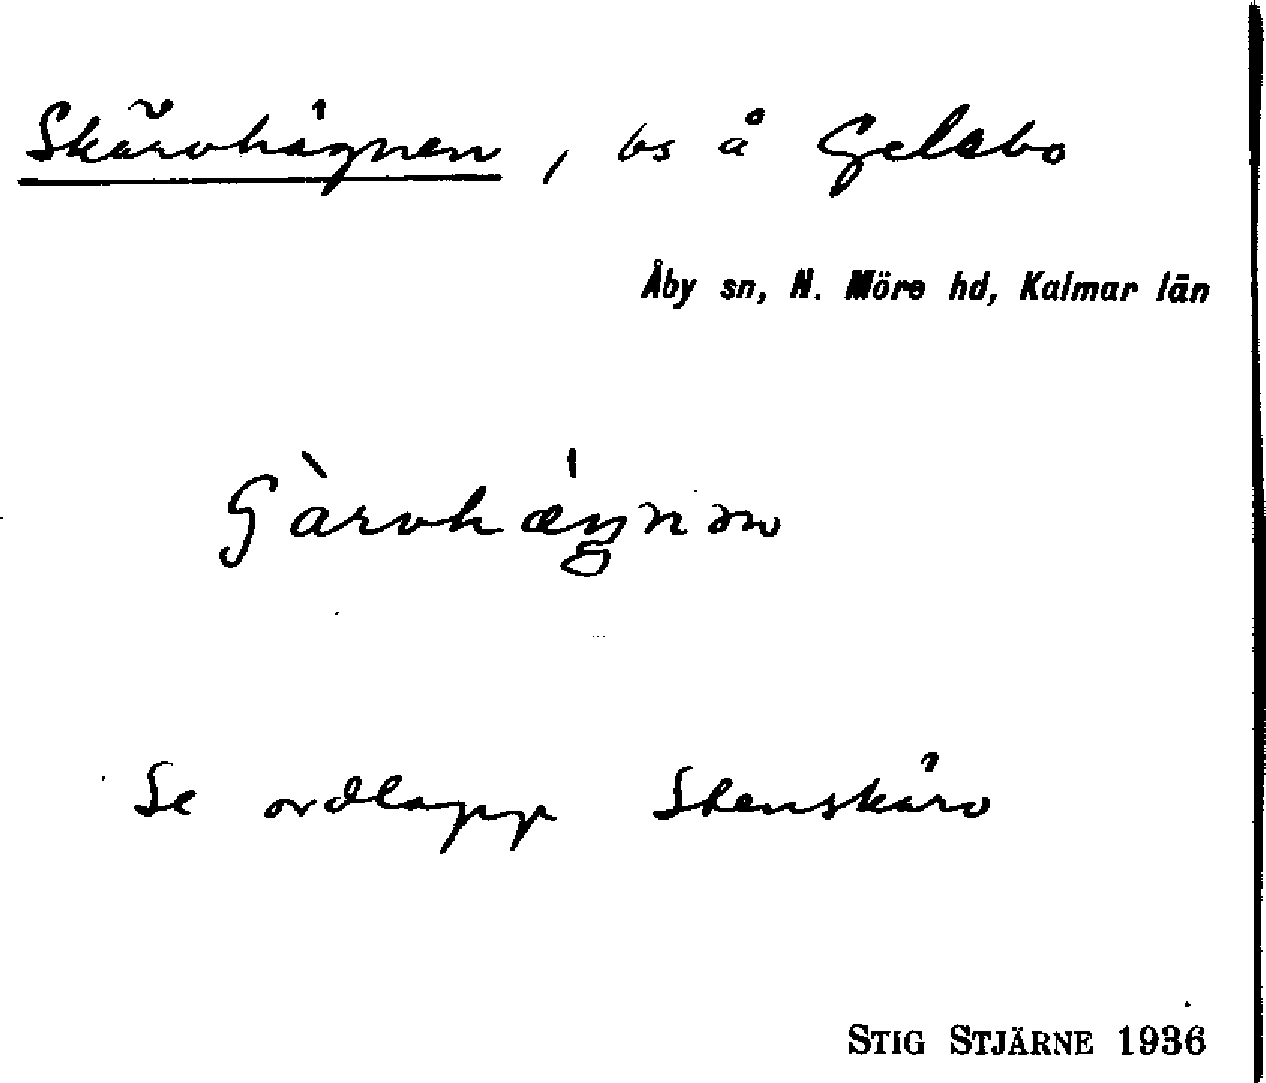 Skärvhägnen, bs å Gelebo
Åby sn, N. Möre hd, Kalmar län
Se ordlapp Stenskärv
STIG STJÄRNE 1936